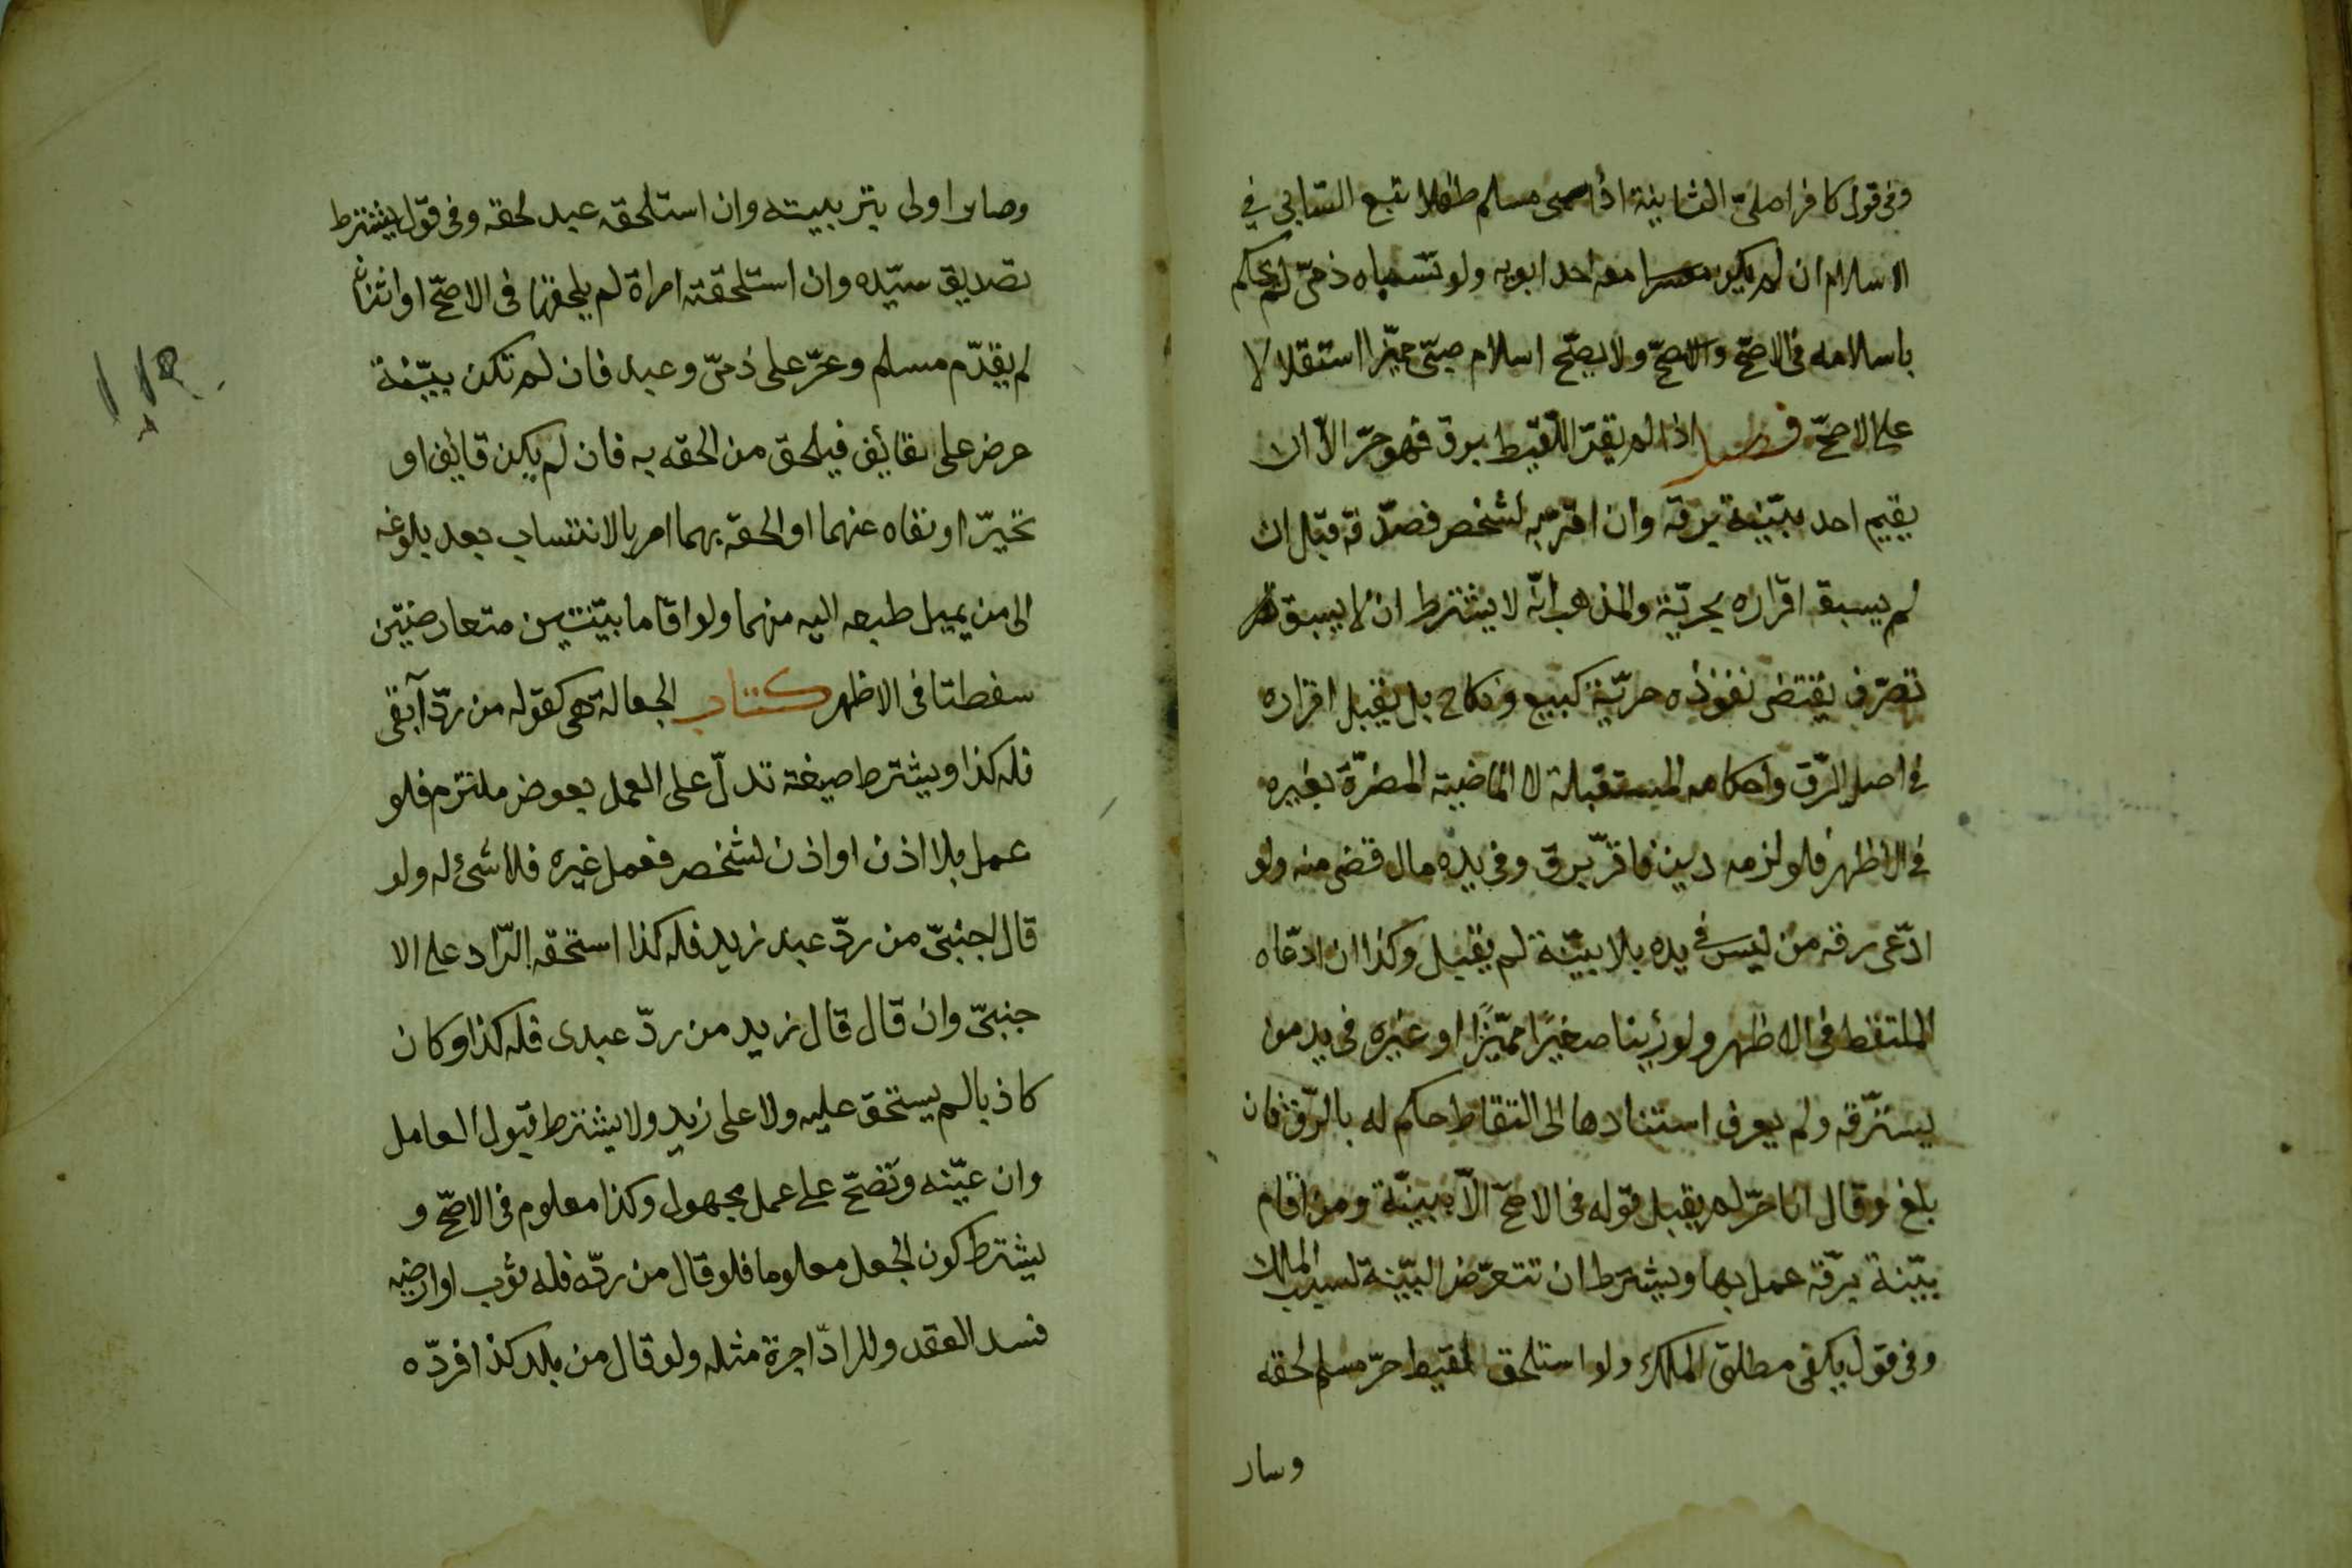 وفى قول كافر اصلىّ الثانية اذا سبى مسلم طفلا تبع السابى في
الاسلام ان لم يكن معه احد ابويه ولو سباه ذمىّ لم يحكم
باسلامه فى الاصحّ ولا يصحّ اسلام صبىّ مميّز استقلالا
على الاصحّ فصل اذا لم يقرّ اللّقيط برق فهو حرّ الاّ ان
يقيم احد ببيّنة برقه وان اقرّ به لشخص فصدّقه قبل ان
لم يسبق اقراره بحريّة والمذهب انّه لا يشترط ان لا يسبق
تصرّف يقتضى نفوذه حريّة كبيع ونكاح بل يقبل اقراره
في اصل الرّق واحكامه المستقبلة لا الماضية المضرّة بغيره
في الاظهر فلو لزمه دين فاقرّ برق وفى يده مال قضى منه ولو
ادّعى رقه من ليس في يده بلا بيّنة لم يقبل وكذا ان ادعّاه
الملتقط فى الاظهر ولو رئينا صغيرًا مميّزًا او غيره فى يد من
يسترّقه ولم يعرف استنادها الى التقاط حكم له بالرّق فان
بلغ وقال انا حرّ لم يقبل قوله فى الاصحّ الاّ ببيّنة ومن اقام
بيّنة برقّه عمل بها ويشترط ان تتعرّض البيّنة لسبب الملك
وفى قول يكفى مطلق الملك ولو استلحق لقيط حرّ مسلم لحقه
وسار
وصار اولى بتربيته وان استلحقه عبد لحقه وفى قول يشترط
تصديق سيّده وان استلحقته امراة لم يلحقها فى الاصحّ او اثنان
لم يقدّم مسلم وحرّ على ذمىّ وعبد فان لم تكن بيّنة
عرض على قائف فيلحق من الحقه به فان لم يكن قائف او
تحيرّ او نفاه عنهما او الحقه بهما امر بالانتساب بعد بلوغه
الى من يميل طبعه اليه منهما ولو اقاما بيّنتين متعارضتين
سقطتا فى الاظهر كتاب الجعالة هى كقوله من ردّ آبقى
فله كذا ويشترط صيغة تدلّ على العمل بعوض ملتزم فلو
عمل بلا اذن او اذن لشخص فعمل غيره فلا شئ له ولو
قال اجنبىّ من ردّ عبد زيد فله كذا استحقه الرّاد على الا
جنبىّ وان قال قال زيد من ردّ عبدى فله كذا وكان
كاذبا لم يستحق عليه ولا على زيد ولا يشترط قبول العامل
وان عيّنه وتصحّ على عمل مجهول وكذا معلوم فى الاصحّ و
يشترط كون الجعل معلوما فلو قال من ردّه فله ثوب او ارضيه
فسد العقد وللرادّ اجرة مثله ولو قال من بلد كذا فردّه